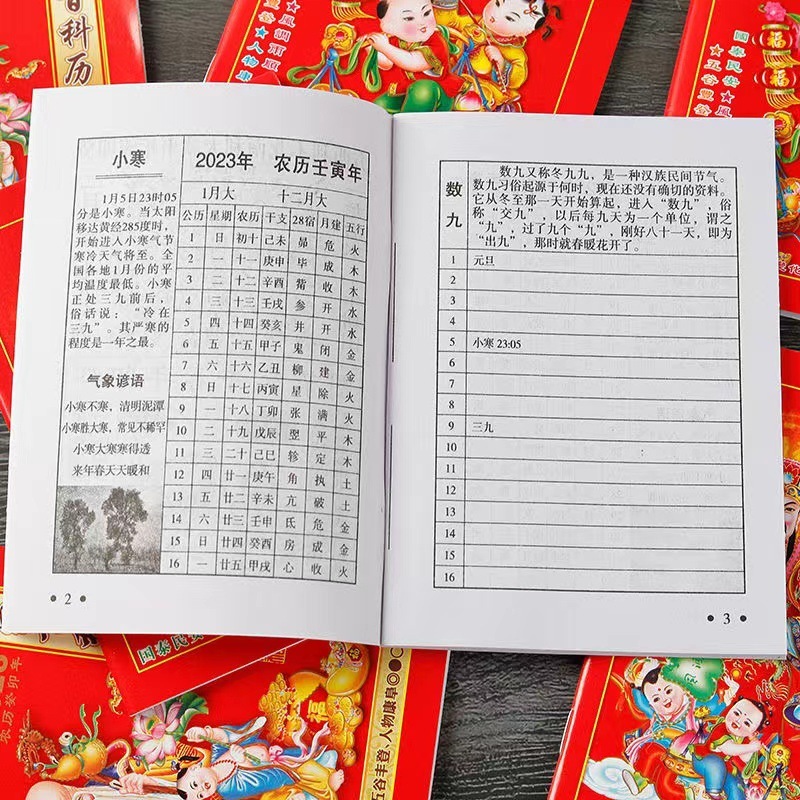 科历
風調雨順★人物康
国泰民安★風
★五谷豐登
小寒
1月5日23时05
分是小寒。当太阳
移达黄经285度时，
开始进入小寒气节
寒冷天气将至。全
国各地1月份的平
均温度最低。小寒
正处三九前后，
俗话说：“冷在
三九”。其严寒的
程度是一年之最。
气象谚语
小寒不寒，清明泥潭
小寒胜大寒，常见不稀罕
小寒大寒寒得透
来年春天天暖和
2023年 农历壬寅年
1月大 十二月大
公历 星期 农历 干支 28宿 月建 五行
1 日 初十 己未 昴 危 火
2 一 十一 庚申 毕 成 木
3 二 十二 辛酉 觜 收 木
4 三 十三 壬戌 参 开 水
5 四 十四 癸亥 井 开 水
6 五 十五 甲子 鬼 闭 金
7 六 十六 乙丑 柳 建 金
8 日 十七 丙寅 星 除 火
9 一 十八 丁卯 张 满 火
10 二 十九 戊辰 翌 平 木
11 三 二十 己巳 轸 定 木
12 四 廿一 庚午 角 执 土
13 五 廿二 辛未 亢 破 土
14 六 廿三 壬申 氐 危 金
15 日 廿四 癸酉 房 成 金
16 一 廿五 甲戌 心 收 火
2
数九
数九又称冬九九，是一种汉族民间节气。
数九习俗起源于何时，现在还没有确切的资料。
它从冬至那一天开始算起，进入“数九”，俗
称“交九”，以后每九天为一个单位，谓之
“九”，过了九个“九”，刚好八十一天，即为
“出九”，那时就春暖花开了。
1 元旦
2
3
4
5 小寒 23:05
6
7
8
9 三九
10
11
12
13
14
15
16
3
农历癸卯年
国泰民安
福
五谷丰登、人物康阜